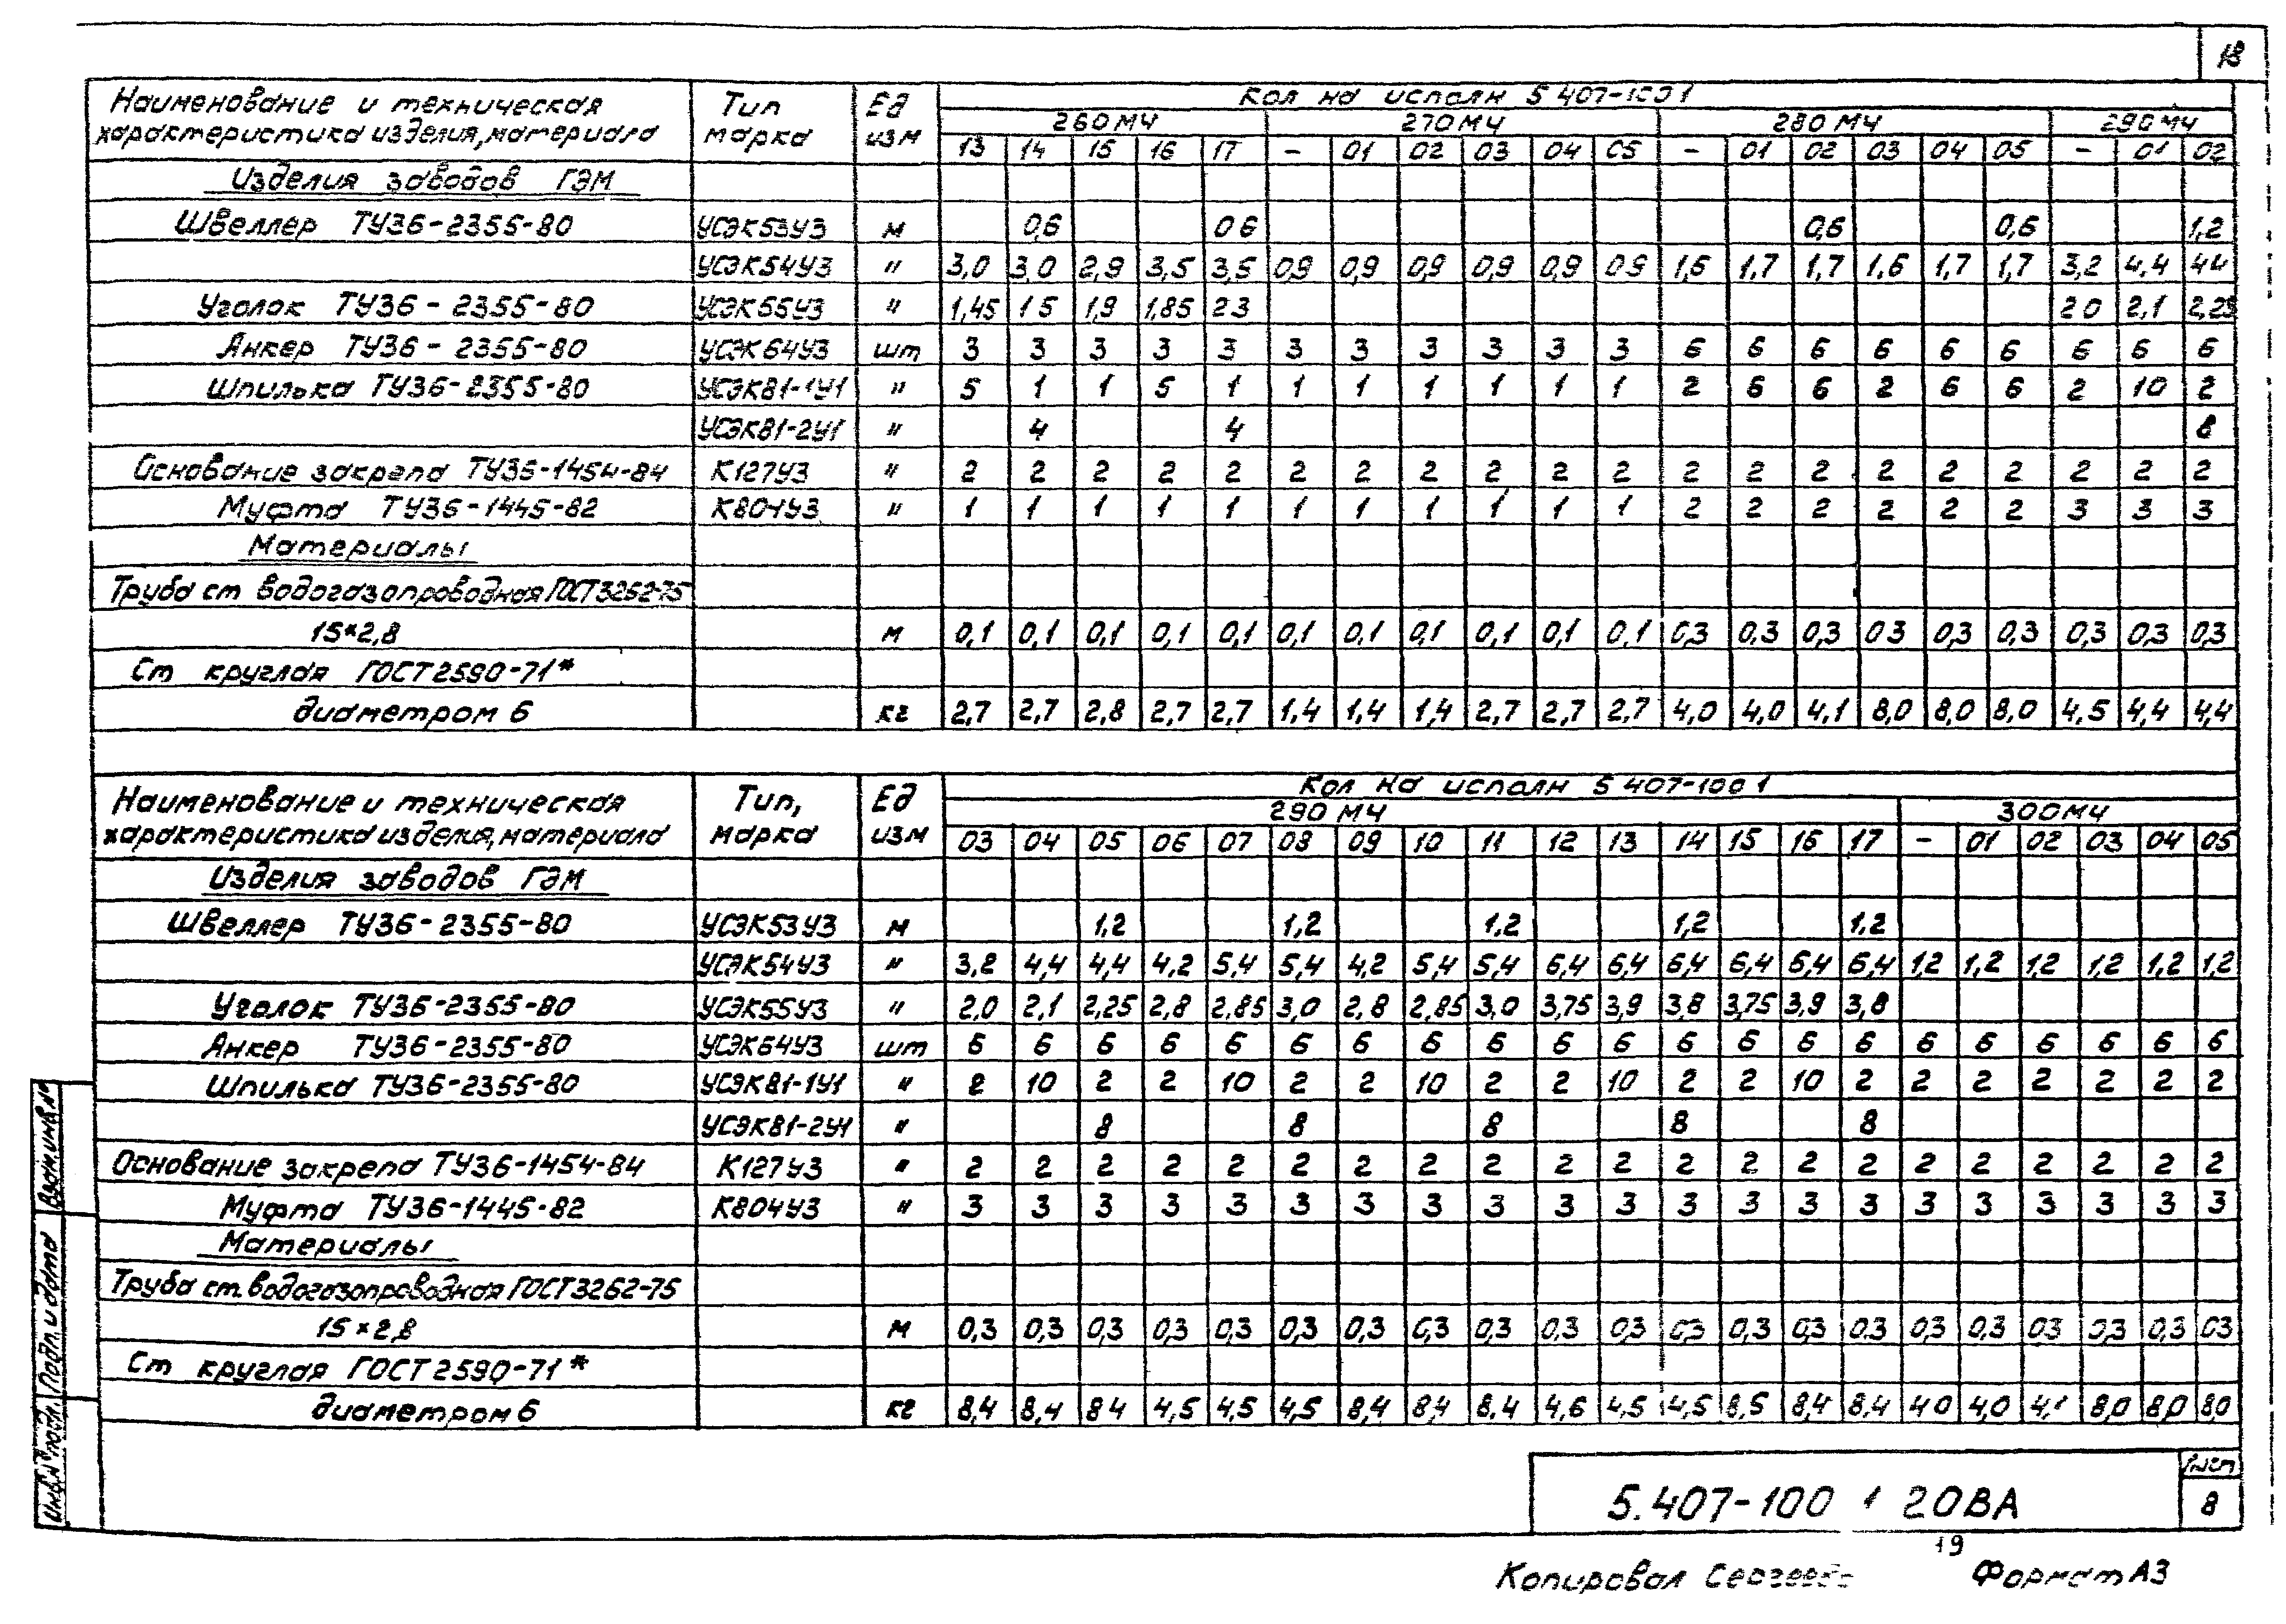 18
Наименование и техническая характеристика изделия, материала | Тип марка | Ед изм | Кол на исполн 5 407-100 1
260МЧ | 270МЧ | 280МЧ | 290МЧ
13 14 15 16 17 – 01 02 03 04 05 – 01 02 03 04 05 – 01 02
Изделия заводов ГЭМ
Швеллер ТУ36-2355-80 УСЭК53У3 м 0,6 06 0,6 0,6 1,2
УСЭК54У3 " 3,0 3,0 2,9 3,5 3,5 0,9 0,9 0,9 0,9 0,9 0,9 1,6 1,7 1,7 1,6 1,7 1,7 3,2 4,4 44
Уголок ТУ36-2355-80 УСЭК55У3 " 1,45 15 1,9 1,85 23 20 2,1 2,25
Анкер ТУ36-2355-80 УСЭК64У3 шт 3 3 3 3 3 3 3 3 3 3 3 6 6 6 6 6 6 6 6 6
Шпилька ТУ36-2355-80 УСЭК81-1У1 " 5 1 1 5 1 1 1 1 1 1 1 2 6 6 2 6 6 2 10 2
УСЭК81-2У1 " 4 4 8
Основание закрепа ТУ36-1454-84 К127У3 " 2 2 2 2 2 2 2 2 2 2 2 2 2 2 2 2 2 2 2 2
Муфта ТУ36-1445-82 К804У3 " 1 1 1 1 1 1 1 1 1 1 1 2 2 2 2 2 2 3 3 3
Материалы
Труба ст водогазопроводная ГОСТ3262-75
15×2,8 м 0,1 0,1 0,1 0,1 0,1 0,1 0,1 0,1 0,1 0,1 0,1 0,3 0,3 0,3 03 0,3 0,3 0,3 0,3 0,3
Ст круглая ГОСТ2590-71*
диаметром 6 кг 2,7 2,7 2,8 2,7 2,7 1,4 1,4 1,4 2,7 2,7 2,7 4,0 4,0 4,1 8,0 8,0 8,0 4,5 4,4 4,4
Наименование и техническая характеристика изделия, материала | Тип, марка | Ед изм | Кол на исполн 5 407-100 1
290МЧ | 300МЧ
03 04 05 06 07 08 09 10 11 12 13 14 15 16 17 – 01 02 03 04 05
Изделия заводов ГЭМ
Швеллер ТУ36-2355-80 УСЭК53У3 м 1,2 1,2 1,2 1,2 1,2
УСЭК54У3 " 3,2 4,4 4,4 4,2 5,4 5,4 4,2 5,4 5,4 6,4 6,4 6,4 6,4 6,4 6,4 1,2 1,2 1,2 1,2 1,2 1,2
Уголок ТУ36-2355-80 УСЭК55У3 " 2,0 2,1 2,25 2,8 2,85 3,0 2,8 2,85 3,0 3,75 3,9 3,8 3,75 3,9 3,8
Анкер ТУ36-2355-80 УСЭК64У3 шт 6 6 6 6 6 6 6 6 6 6 6 6 6 6 6 6 6 6 6 6 6
Шпилька ТУ36-2355-80 УСЭК81-1У1 " 2 10 2 2 10 2 2 10 2 2 10 2 2 10 2 2 2 2 2 2 2
УСЭК81-2У1 " 8 8 8 8 8
Основание закрепа ТУ36-1454-84 К127У3 " 2 2 2 2 2 2 2 2 2 2 2 2 2 2 2 2 2 2 2 2 2
Муфта ТУ36-1445-82 К804У3 " 3 3 3 3 3 3 3 3 3 3 3 3 3 3 3 3 3 3 3 3 3
Материалы
Труба ст. водогазопроводная ГОСТ3262-75
15×2,8 м 0,3 0,3 0,3 0,3 0,3 0,3 0,3 0,3 0,3 0,3 0,3 0,3 0,3 0,3 0,3 0,3 0,3 03 0,3 0,3 03
Ст круглая ГОСТ2590-71*
диаметром 6 кг 8,4 8,4 84 4,5 4,5 4,5 8,4 8,4 8,4 4,6 4,5 4,5 8,5 8,4 8,4 40 4,0 4,1 8,0 8,0 8,0
Инв.№ подл. Подп. и дата Взам инв №
5.407-100 1 20ВА
Лист
8
19
Копировал Формат А3